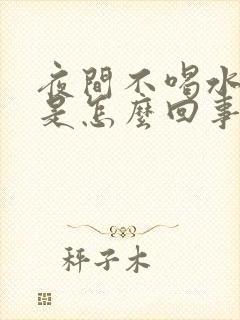 夜間不喝水
是怎麼回事
秤子木